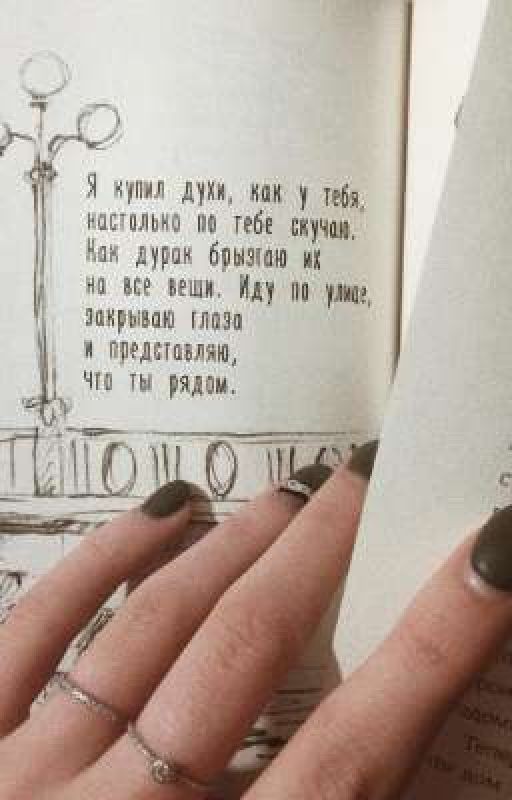 Я купил духи, как у тебя,
настолько по тебе скучаю.
Как дурак брызгаю их
на все вещи. Иду по улице,
закрываю глаза
и представляю,
что ты рядом.
дом